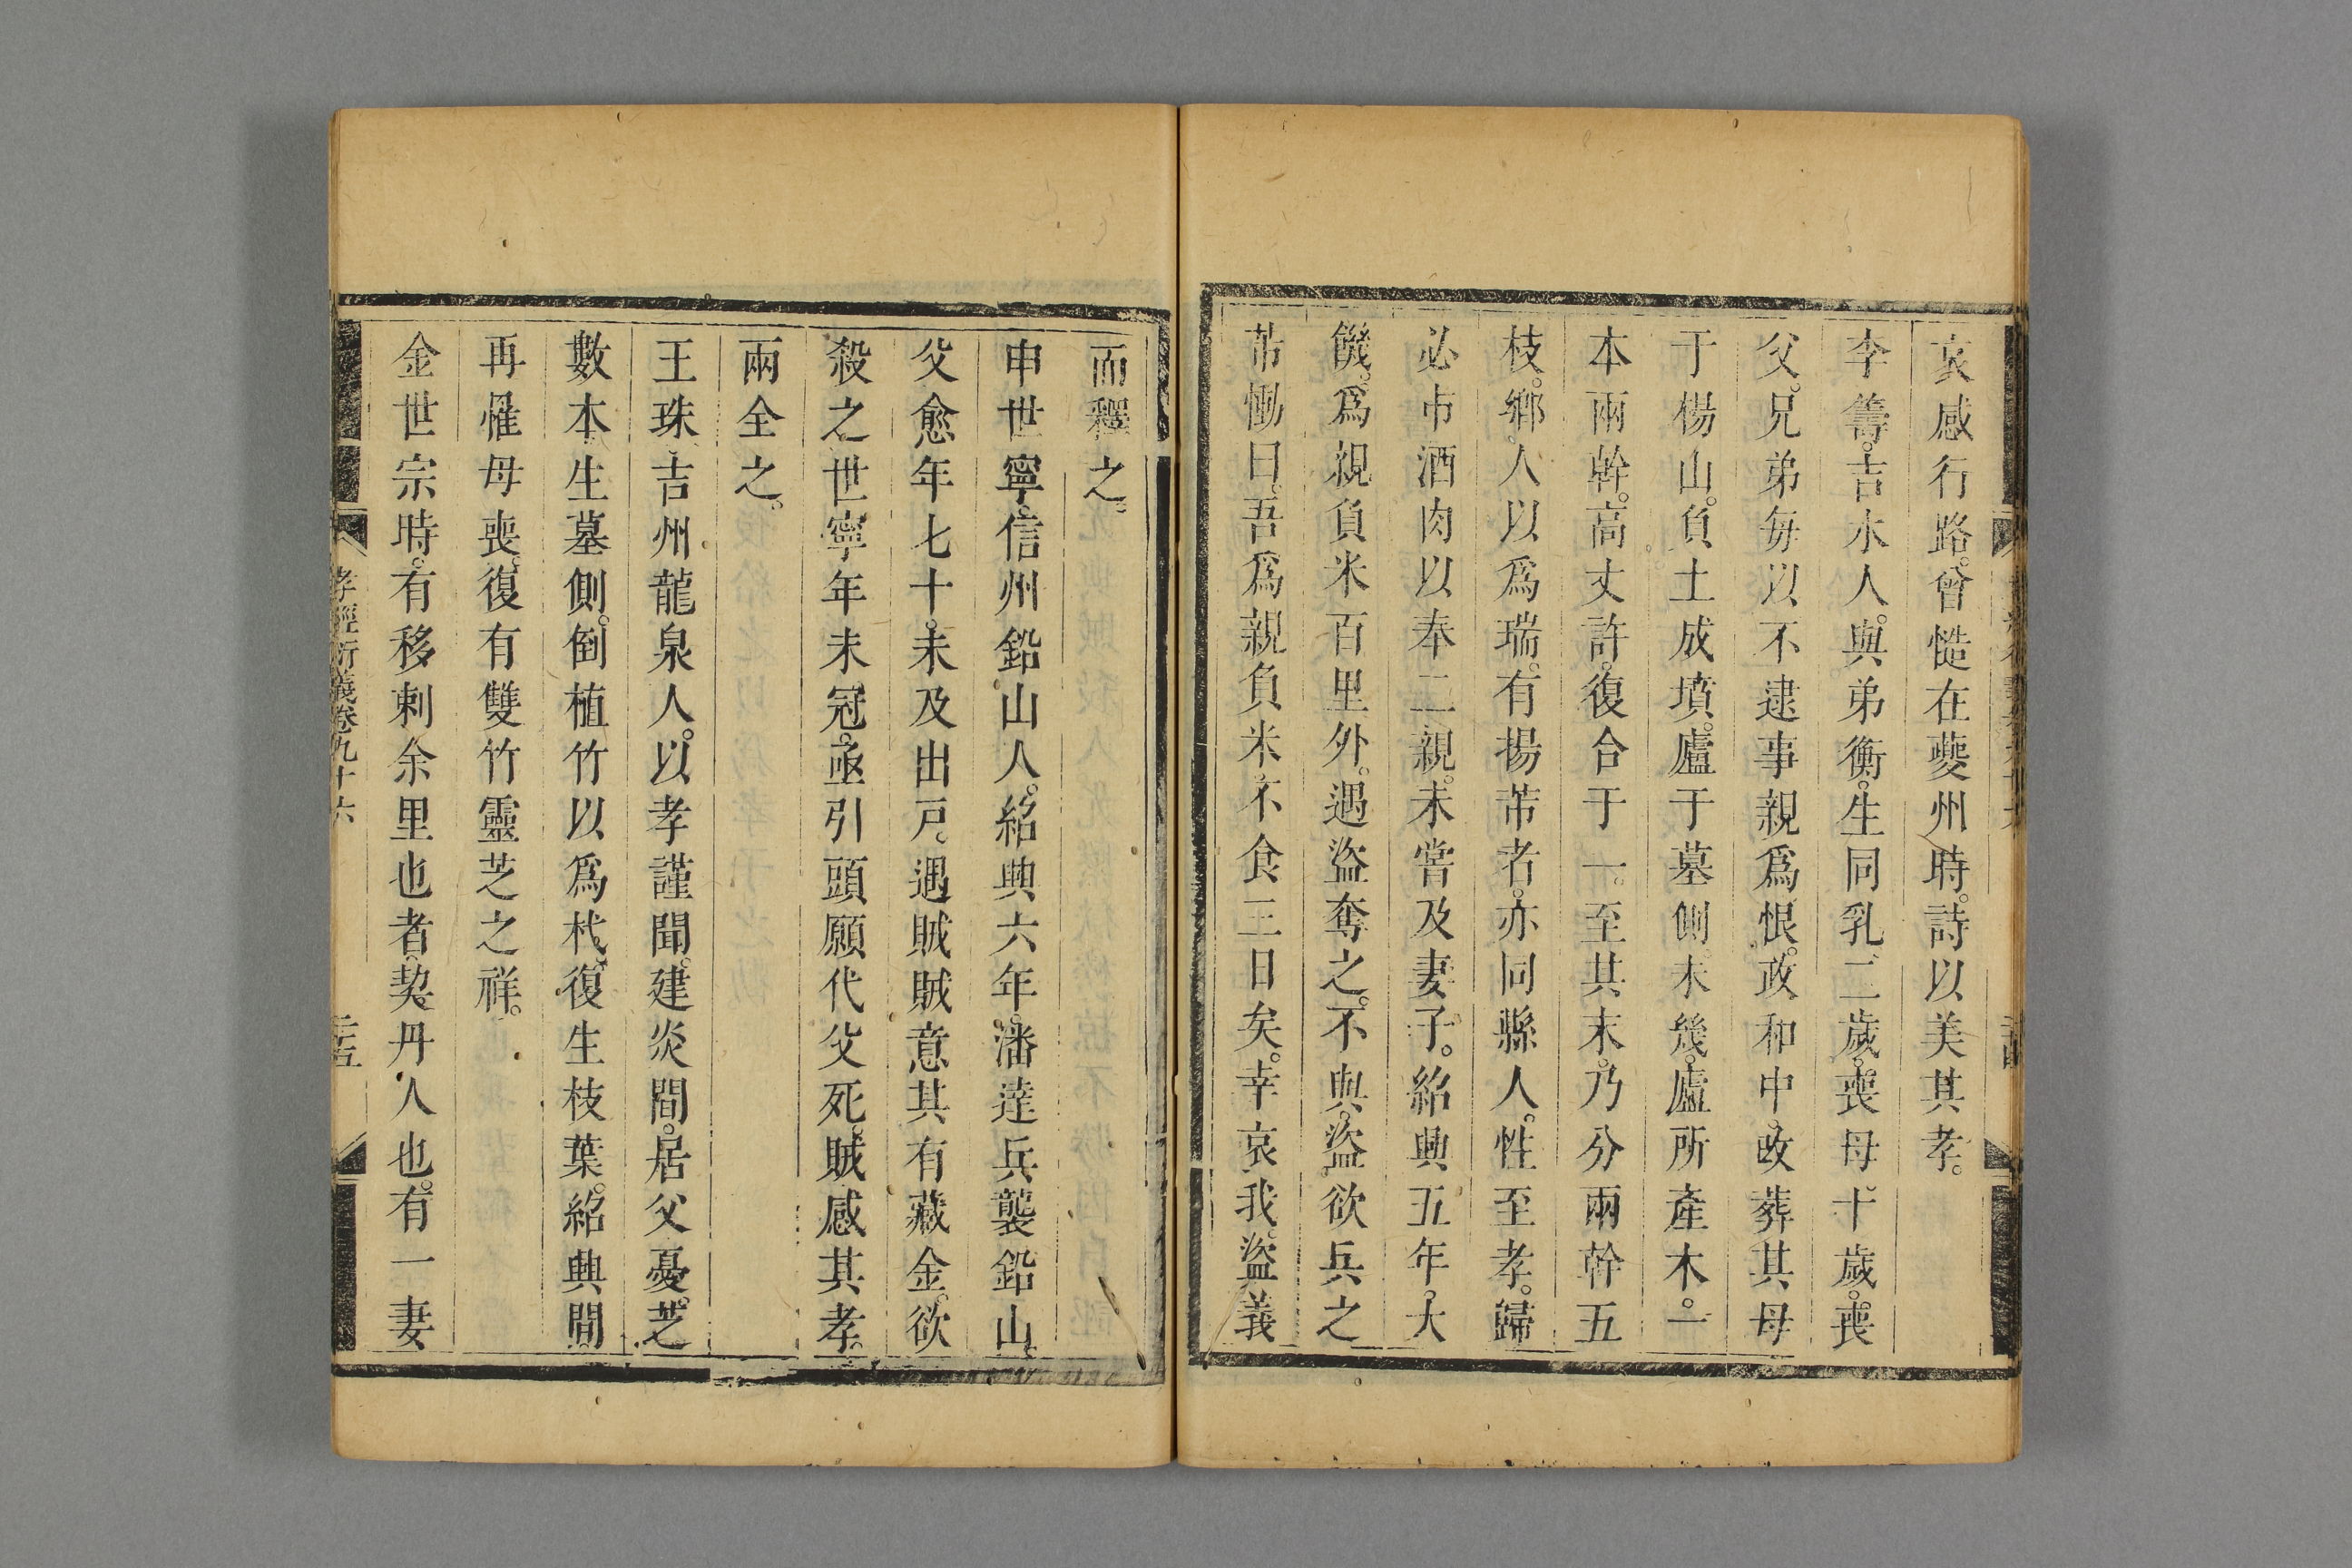 哀感行路。曾慥在夔州時。詩以美其孝。
李籌。吉水人。與弟衡。生同乳。二歲。喪母。十歲。喪
父。兄弟每以不逮事親爲恨。政和中。改葬其母
于楊山。負土成墳。廬于墓側。未幾。廬所產木。一
本兩幹。高丈許。復合于一。至其末。乃分兩幹五
枝。鄉人以爲瑞。有揚芾者。亦同縣人。性至孝。歸
必市酒肉以奉二親。未嘗及妻子。紹興五年。大
饑。爲親負米百里外。遇盜奪之。不與。盜欲兵之
芾慟曰。吾爲親負米。不食三日矣。幸哀我。盜義
而釋之。
申世寧。信州鉛山人。紹興六年。潘逵兵襲鉛山。
父愈年七十。未及出戸。遇賊。賊意其有藏金。欲
殺之。世寧年未冠。亟引頭願代父死。賊感其孝。
兩全之。
王珠。吉州龍泉人。以孝謹聞。建炎間。居父憂。芝
數本生墓側。倒植竹以爲杙。復生枝葉。紹興間
再罹母喪。復有雙竹靈芝之祥。
金世宗時。有移剌余里也者。契丹人也。有一妻
孝經衍義卷九十六
二十五